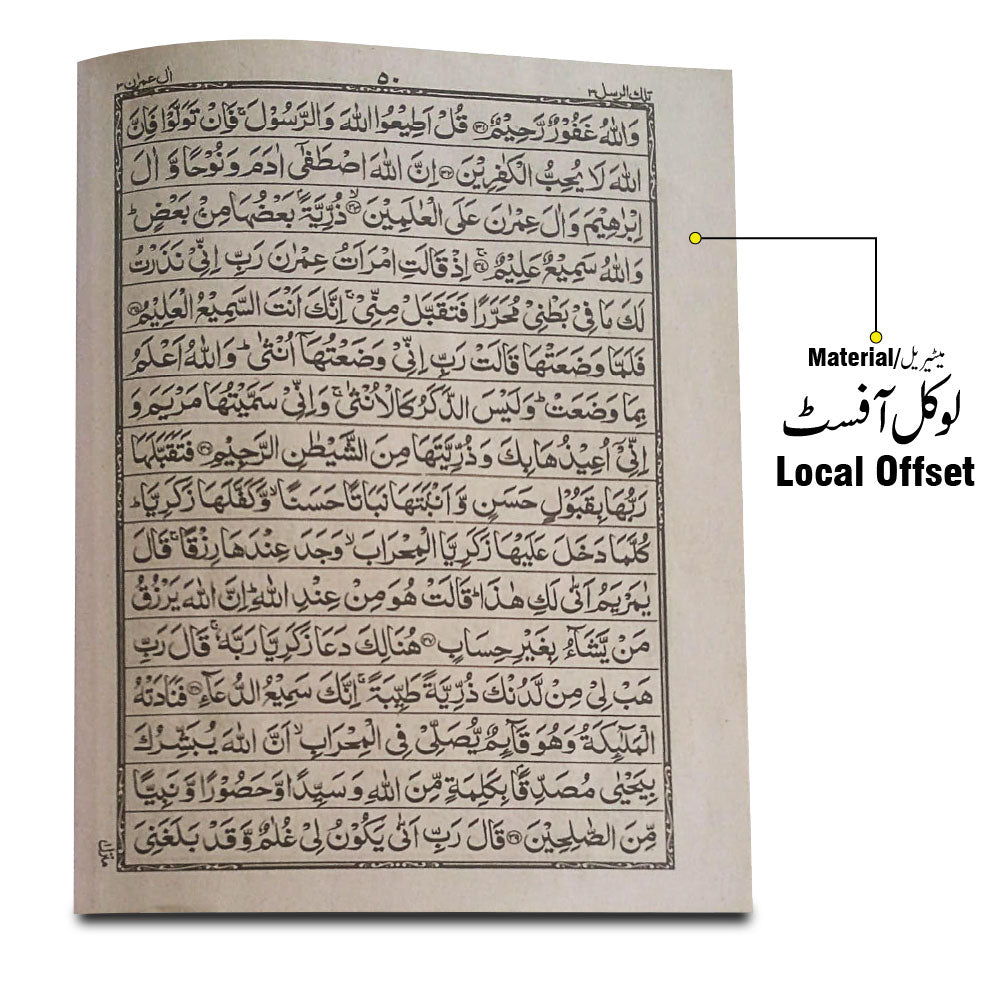 تلك الرسل ٣
٥٠
اٰل عمرٰن ٣
وَاللّٰهُ غَفُوْرٌ رَّحِيْمٌ ﴿٣١﴾ قُلْ اَطِيْعُوا اللّٰهَ وَالرَّسُوْلَ ۚ فَاِنْ تَوَلَّوْا فَاِنَّ
اللّٰهَ لَا يُحِبُّ الْكٰفِرِيْنَ ﴿٣٢﴾ اِنَّ اللّٰهَ اصْطَفٰٓى اٰدَمَ وَنُوْحًا وَّ اٰلَ
اِبْرٰهِيْمَ وَاٰلَ عِمْرٰنَ عَلَى الْعٰلَمِيْنَ ﴿٣٣﴾ۙ ذُرِّيَّةًۢ بَعْضُهَا مِنْۢ بَعْضٍ ؕ
وَاللّٰهُ سَمِيْعٌ عَلِيْمٌ ﴿٣٤﴾ۚ اِذْ قَالَتِ امْرَاَتُ عِمْرٰنَ رَبِّ اِنِّىْ نَذَرْتُ
لَكَ مَا فِىْ بَطْنِىْ مُحَرَّرًا فَتَقَبَّلْ مِنِّىْ ۚ اِنَّكَ اَنْتَ السَّمِيْعُ الْعَلِيْمُ ﴿٣٥﴾
فَلَمَّا وَضَعَتْهَا قَالَتْ رَبِّ اِنِّىْ وَضَعْتُهَاۤ اُنْثٰى ؕ وَاللّٰهُ اَعْلَمُ
بِمَا وَضَعَتْ ؕ وَلَيْسَ الذَّكَرُ كَالْاُنْثٰى ۚ وَاِنِّىْ سَمَّيْتُهَا مَرْيَمَ وَ
اِنِّىْۤ اُعِيْذُهَا بِكَ وَ ذُرِّيَّتَهَا مِنَ الشَّيْطٰنِ الرَّجِيْمِ ﴿٣٦﴾ فَتَقَبَّلَهَا
رَبُّهَا بِقَبُوْلٍ حَسَنٍ وَّ اَنْۢبَتَهَا نَبَاتًا حَسَنًا ۙ وَّ كَفَّلَهَا زَكَرِيَّا ؕ
كُلَّمَا دَخَلَ عَلَيْهَا زَكَرِيَّا الْمِحْرَابَ ۙ وَجَدَ عِنْدَهَا رِزْقًا ۚ قَالَ
يٰمَرْيَمُ اَنّٰى لَكِ هٰذَا ؕ قَالَتْ هُوَ مِنْ عِنْدِ اللّٰهِ ؕ اِنَّ اللّٰهَ يَرْزُقُ
مَنْ يَّشَآءُ بِغَيْرِ حِسَابٍ ﴿٣٧﴾ هُنَالِكَ دَعَا زَكَرِيَّا رَبَّهٗ ۚ قَالَ رَبِّ
هَبْ لِىْ مِنْ لَّدُنْكَ ذُرِّيَّةً طَيِّبَةً ۚ اِنَّكَ سَمِيْعُ الدُّعَآءِ ﴿٣٨﴾ فَنَادَتْهُ
الْمَلٰٓئِكَةُ وَهُوَ قَآئِمٌ يُّصَلِّىْ فِى الْمِحْرَابِ ۙ اَنَّ اللّٰهَ يُبَشِّرُكَ
بِيَحْيٰى مُصَدِّقًۢا بِكَلِمَةٍ مِّنَ اللّٰهِ وَسَيِّدًا وَّحَصُوْرًا وَّنَبِيًّا
مِّنَ الصّٰلِحِيْنَ ﴿٣٩﴾ قَالَ رَبِّ اَنّٰى يَكُوْنُ لِىْ غُلٰمٌ وَّقَدْ بَلَغَنِىَ
منزل
Material/میٹیریل
لوکل آفسٹ
Local Offset